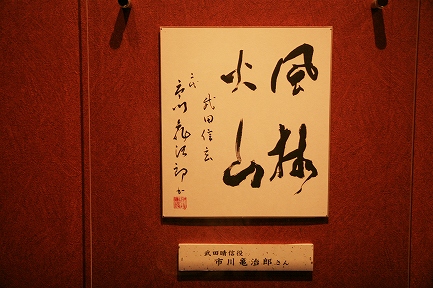 風林
火山
武田信玄
二代
市川亀治郎
武田晴信役
市川亀治郎さん